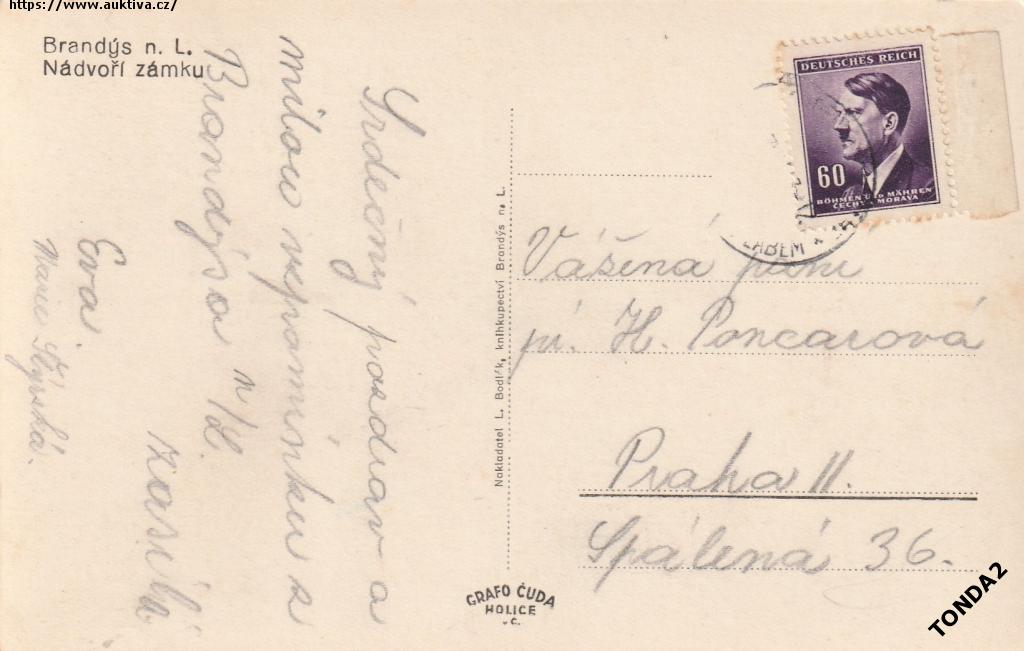 https://www.auktiva.cz/
Brandýs n. L.
Nádvoří zámku
Srdečný pozdrav a
milou vzpomínku z
Brandýsa n/L.
zasílá
Eva
DEUTSCHES REICH
60
BÖHMEN UND MÄHREN
ČECHY A MORAVA
LABEM *
Vážená paní
pí. H. Poncarová
Praha II.
Spálená 36.
Nakladatel L. Bodlák, knihkupectví Brandýs n. L.
GRAFO ČUDA
HOLICE
v Č.
TONDA2